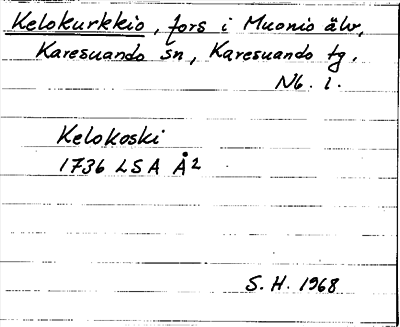 Kelokurkkio, fors i Muonio älv,
Karesuando sn, Karesuando tg.
Nb. l.
Kelokoski
1736 LSA Å2
S. H. 1968